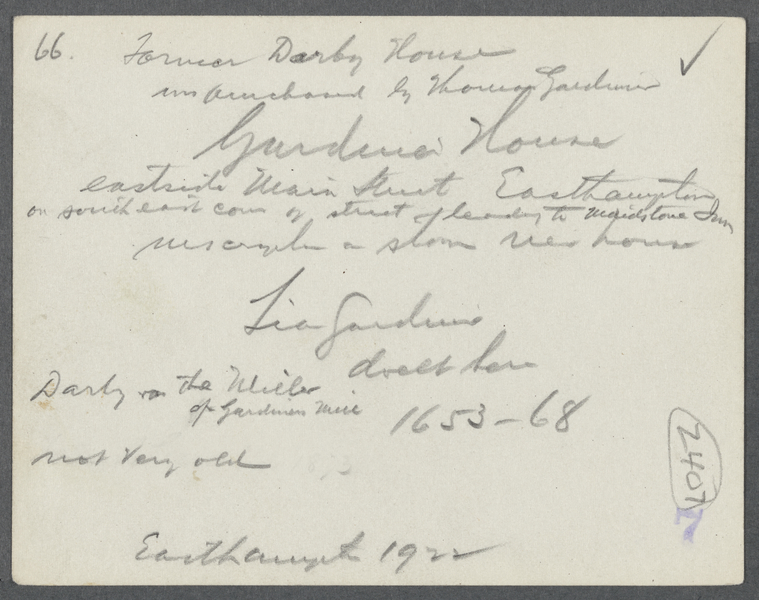 66. Former Darby House
purchased by Thomas Gardiner
Gardiner House
eastside Main Street Easthampton
on southeast corn of street leading to Maidstone Inn
on a stone house
Lion Gardiner
dwelt here
Darby was the Miller
of Gardiners Mill
1653-68
not very old
2407
7
Easthampton 1922